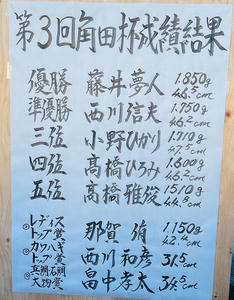 第3回角田杯成績結果
優勝 藤井夢人 1.850g 46.5cm
準優勝 西川信夫 1.750g 46.2cm
三位 小野ひかり 1.710g 47.5cm
四位 髙橋ひろみ 1.600g 46.2cm
五位 髙橋雅俊 1510g 44.8cm
レディス トップ賞 那賀 1.150g 42.cm
カワハギ トップ賞 西川和彦 31.5cm
大物賞 畠中孝太 34.5cm